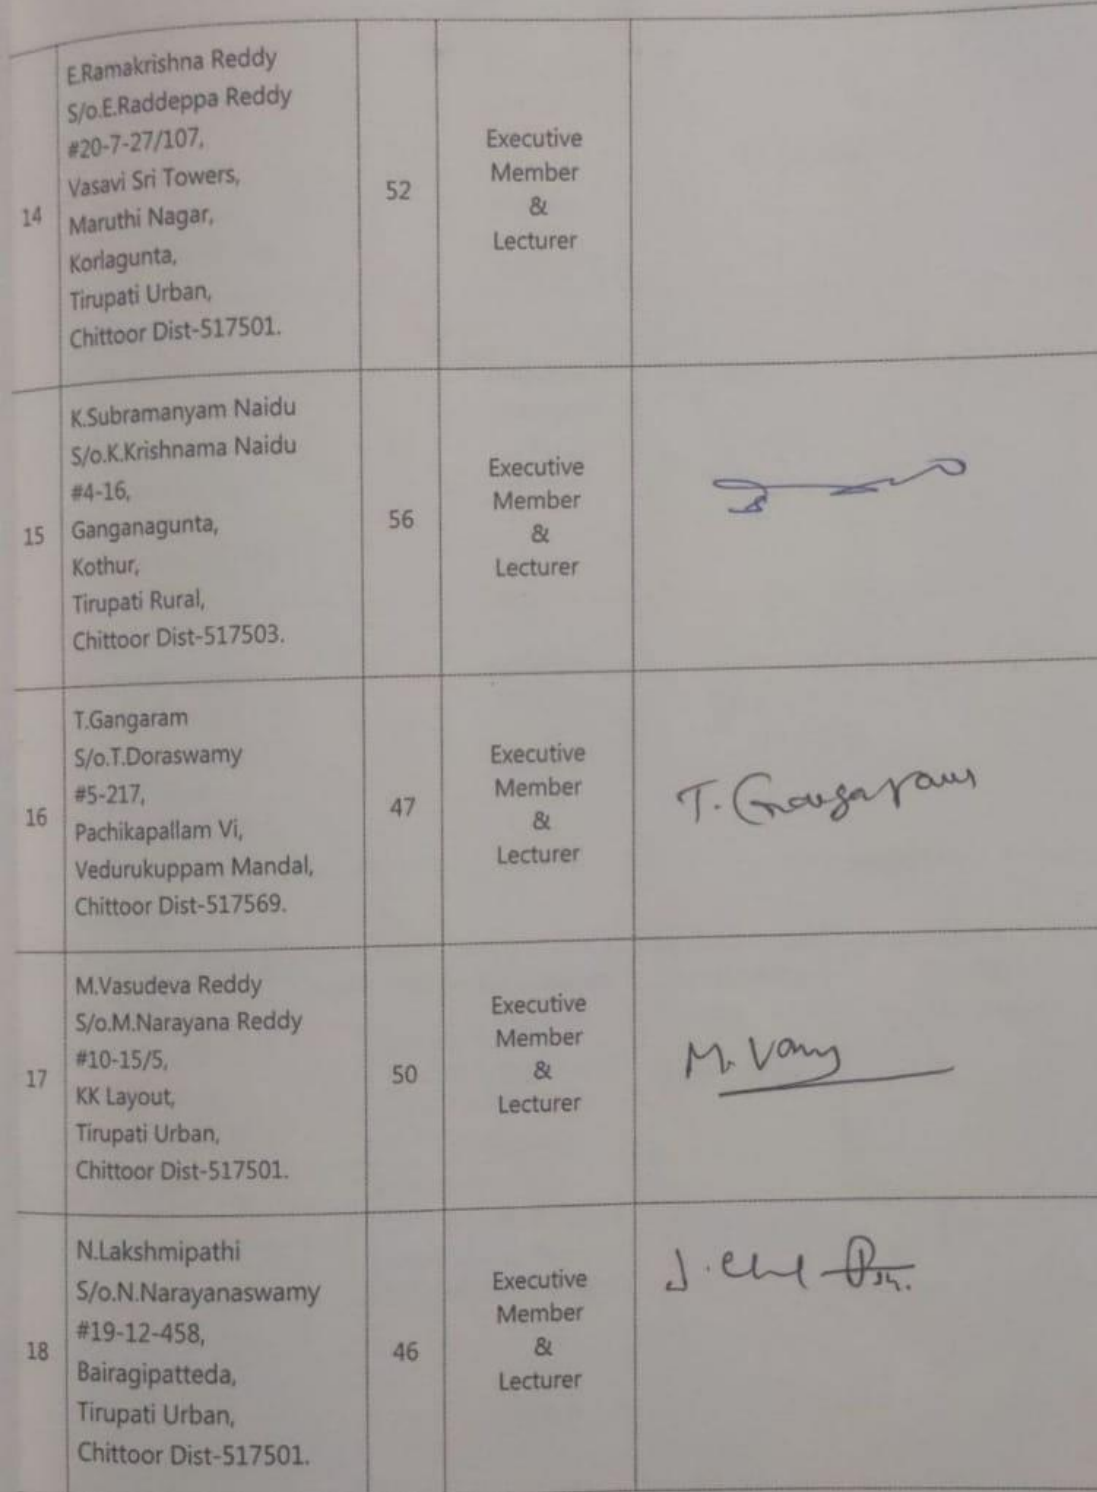 14
E.Ramakrishna Reddy
S/o.E.Raddeppa Reddy
#20-7-27/107,
Vasavi Sri Towers,
Maruthi Nagar,
Korlagunta,
Tirupati Urban,
Chittoor Dist-517501.
52
Executive
Member
&
Lecturer
15
K.Subramanyam Naidu
S/o.K.Krishnama Naidu
#4-16,
Ganganagunta,
Kothur,
Tirupati Rural,
Chittoor Dist-517503.
56
Executive
Member
&
Lecturer
16
T.Gangaram
S/o.T.Doraswamy
#5-217,
Pachikapallam Vi,
Vedurukuppam Mandal,
Chittoor Dist-517569.
47
Executive
Member
&
Lecturer
T. Gangaram
17
M.Vasudeva Reddy
S/o.M.Narayana Reddy
#10-15/5,
KK Layout,
Tirupati Urban,
Chittoor Dist-517501.
50
Executive
Member
&
Lecturer
18
N.Lakshmipathi
S/o.N.Narayanaswamy
#19-12-458,
Bairagipatteda,
Tirupati Urban,
Chittoor Dist-517501.
46
Executive
Member
&
Lecturer